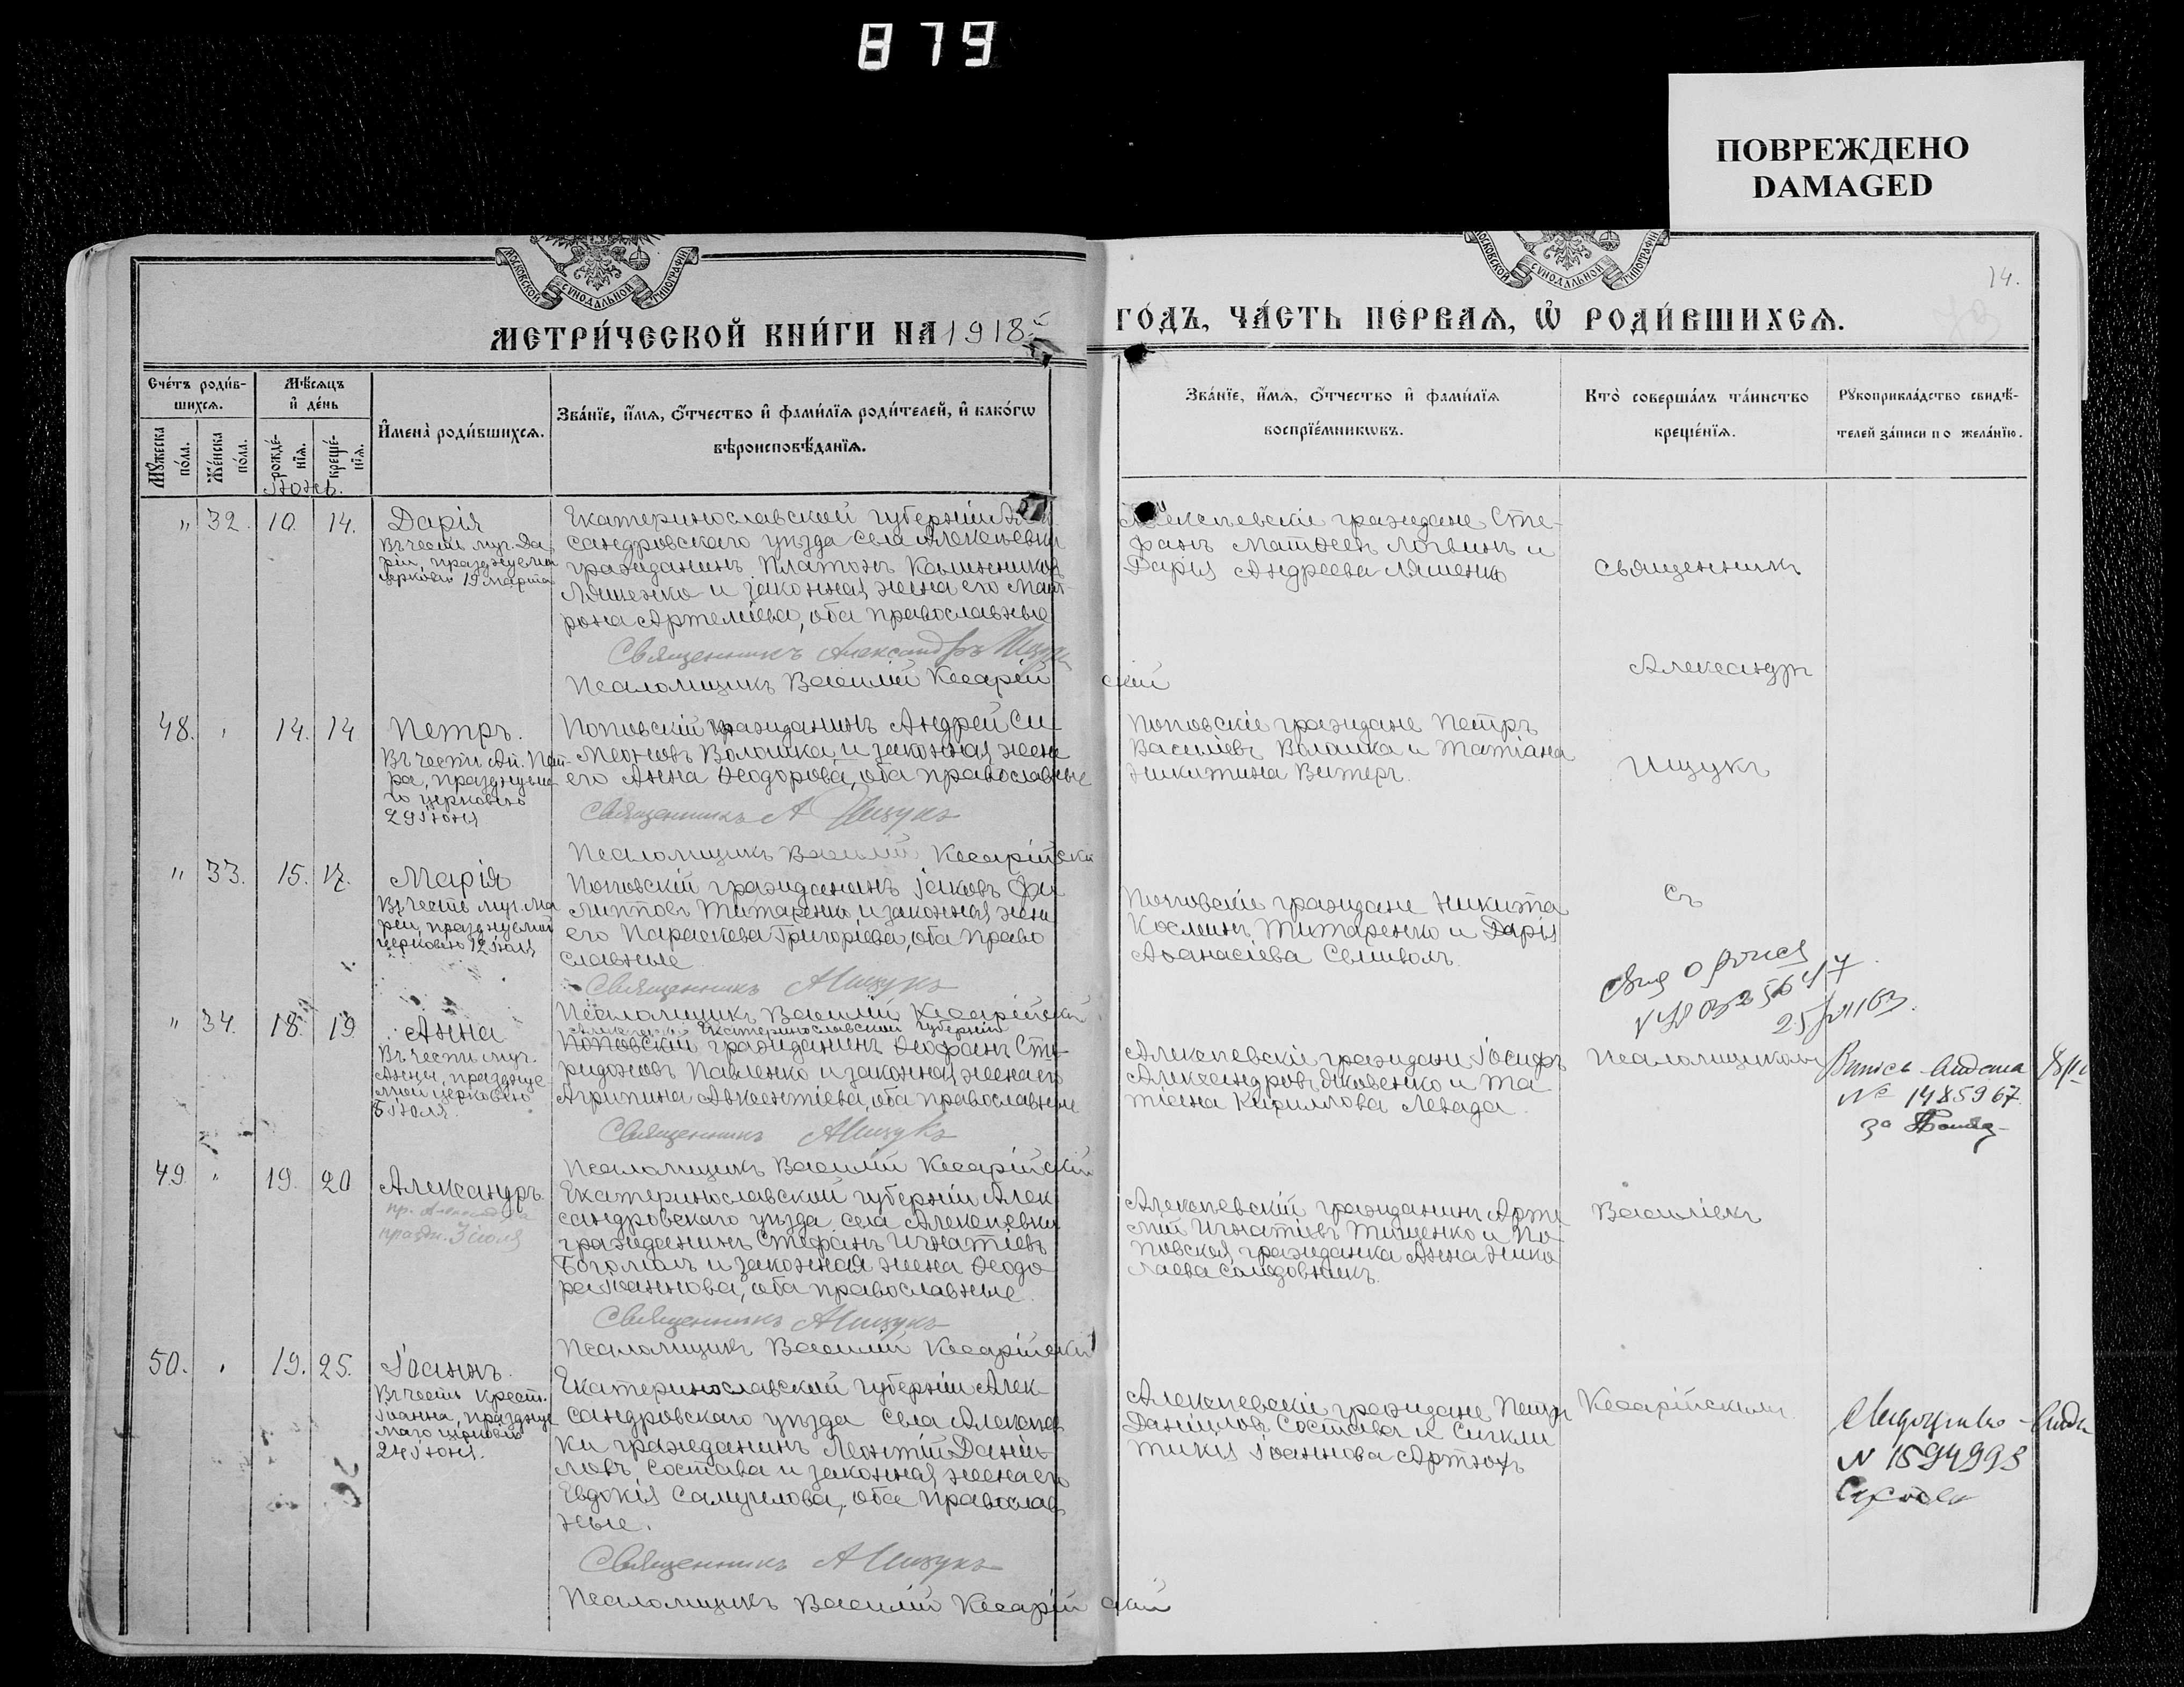 879
ПОВРЕЖДЕНО
DAMAGED
МОСКОВСКОЙ СѴНОДАЛЬНОЙ ТИПОГРАФІИ
МОСКОВСКОЙ СѴНОДАЛЬНОЙ ТИПОГРАФІИ
14.
МЕТРИ́ЧЕСКОЙ КНИ́ГИ НА 1918
ГО́ДЪ, ЧА́СТЬ ПЕ́РВАЯ, Ѡ҆ РОДИ́ВШИХСЯ.
Сче́тъ роди́в-
шихся.
Мѣ́сяцъ
и҆ де́нь
Мꙋ́жеска
по́ла.
Же́нска
по́ла.
рожде́-
нїя.
креще́-
нїя.
И҆мена̀ роди́вшихся.
Зва́нїе, и҆́мя, ѻ҆́тчество и҆ фами́лїя роди́телей, и҆ како́гѡ
вѣроисповѣ́данїя.
Зва́нїе, и҆́мя, ѻ҆́тчество и҆ фами́лїя
воспрїе́мникѡвъ.
Кто̀ соверша́лъ та́инство
креще́нїя.
Рꙋкоприкла́дство свидѣ́-
телей за́писи по жела́нїю.
Іюнь.
" 32. 10. 14. Дарія
Въ честь муч. Да
ріи, празднуемой
церковію 19 марта
Екатеринославской губерніи Алек
сандровскаго уѣзда села Алексѣевки
гражданинъ Платонъ Калинниковъ
Ляшенко и законная жена его Мат
рона Артеміева, оба православные
Священникъ Александръ Ищукъ
Псаломщикъ Василій Кесарійскій
Алексѣевскіе граждане Сте-
фанъ Матѳеевъ Логвинъ и
Дарія Андреева Ляшенко
Священникъ
Александръ
48. " 14. 14 Петръ.
Въ честь Ап. Пет-
ра, празднуема-
го церковію
29 Іюня
Поповскій гражданинъ Андрей Си-
меоновъ Волошка и законная жена
его Анна Ѳеодорова, оба православные
Священникъ А Ищукъ
Псаломщикъ Василій Кесарійскій
Поповскіе граждане Петръ
Василіевъ Волошка и Татіана
Никитина Витеръ.
Ищукъ
" 33. 15. 17. Марія
Въ честь муч. Ма
ріи, празднуемой
церковію 12 Іюля
Поповскій гражданинъ Іаковъ Фи
липповъ Титаренко и законная жена
его Параскева Григоріева, оба право
славные
Священникъ А Ищукъ
Псаломщикъ Василій Кесарійскій
Поповскіе граждане Никита
Косминъ Титаренко и Дарія
Аѳанасіева Семиволъ.
съ
" 34. 18. 19. Анна
Въ честь муч.
Анны, праздную
мой церковію
5 Іюля.
Екатеринославской губерніи
Поповскій гражданинъ Ѳеофанъ Спи-
ридоновъ Павленко и законная жена его
Агрипина Авксентіева, оба православные
Священникъ А Ищукъ
Псаломщикъ Василій Кесарійскій
Алексѣевскіе граждане Іосифъ
Александровъ Яковенко и Та
тіана Кириллова Левада.
Псаломщикомъ
№ 1485967
49. " 19. 20 Александръ.
праздн. 3 іюля
Екатеринославской губерніи Алек
сандровскаго уѣзда села Алексѣевки
гражданинъ Стефанъ Игнатіевъ
Богомолъ и законная жена Ѳеодо
ра Іоаннова, оба православные.
Священникъ А Ищукъ
Псаломщикъ Василій Кесарійскій
Алексѣевскій гражданинъ Арте
мій Игнатіевъ Тищенко и По-
повская гражданка Анна Нико
лаева Солодовникъ.
Василіемъ
50. " 19. 25. Іоаннъ.
Въ честь Крест.
Іоанна, праздную
маго церковію
24 Іюня.
Екатеринославской губерніи Алек
сандровскаго уѣзда села Алексѣев
ки гражданинъ Леонтій Даніи-
ловъ Состава и законная жена его
Евдокія Самуилова, оба православ
ные.
Священникъ А Ищукъ
Псаломщикъ Василій Кесарійскій
Алексѣевскіе граждане Петръ
Даніиловъ Состава и Сигкли
тикія Іоаннова Артюхъ
Кесарійскимъ
№ 1594993